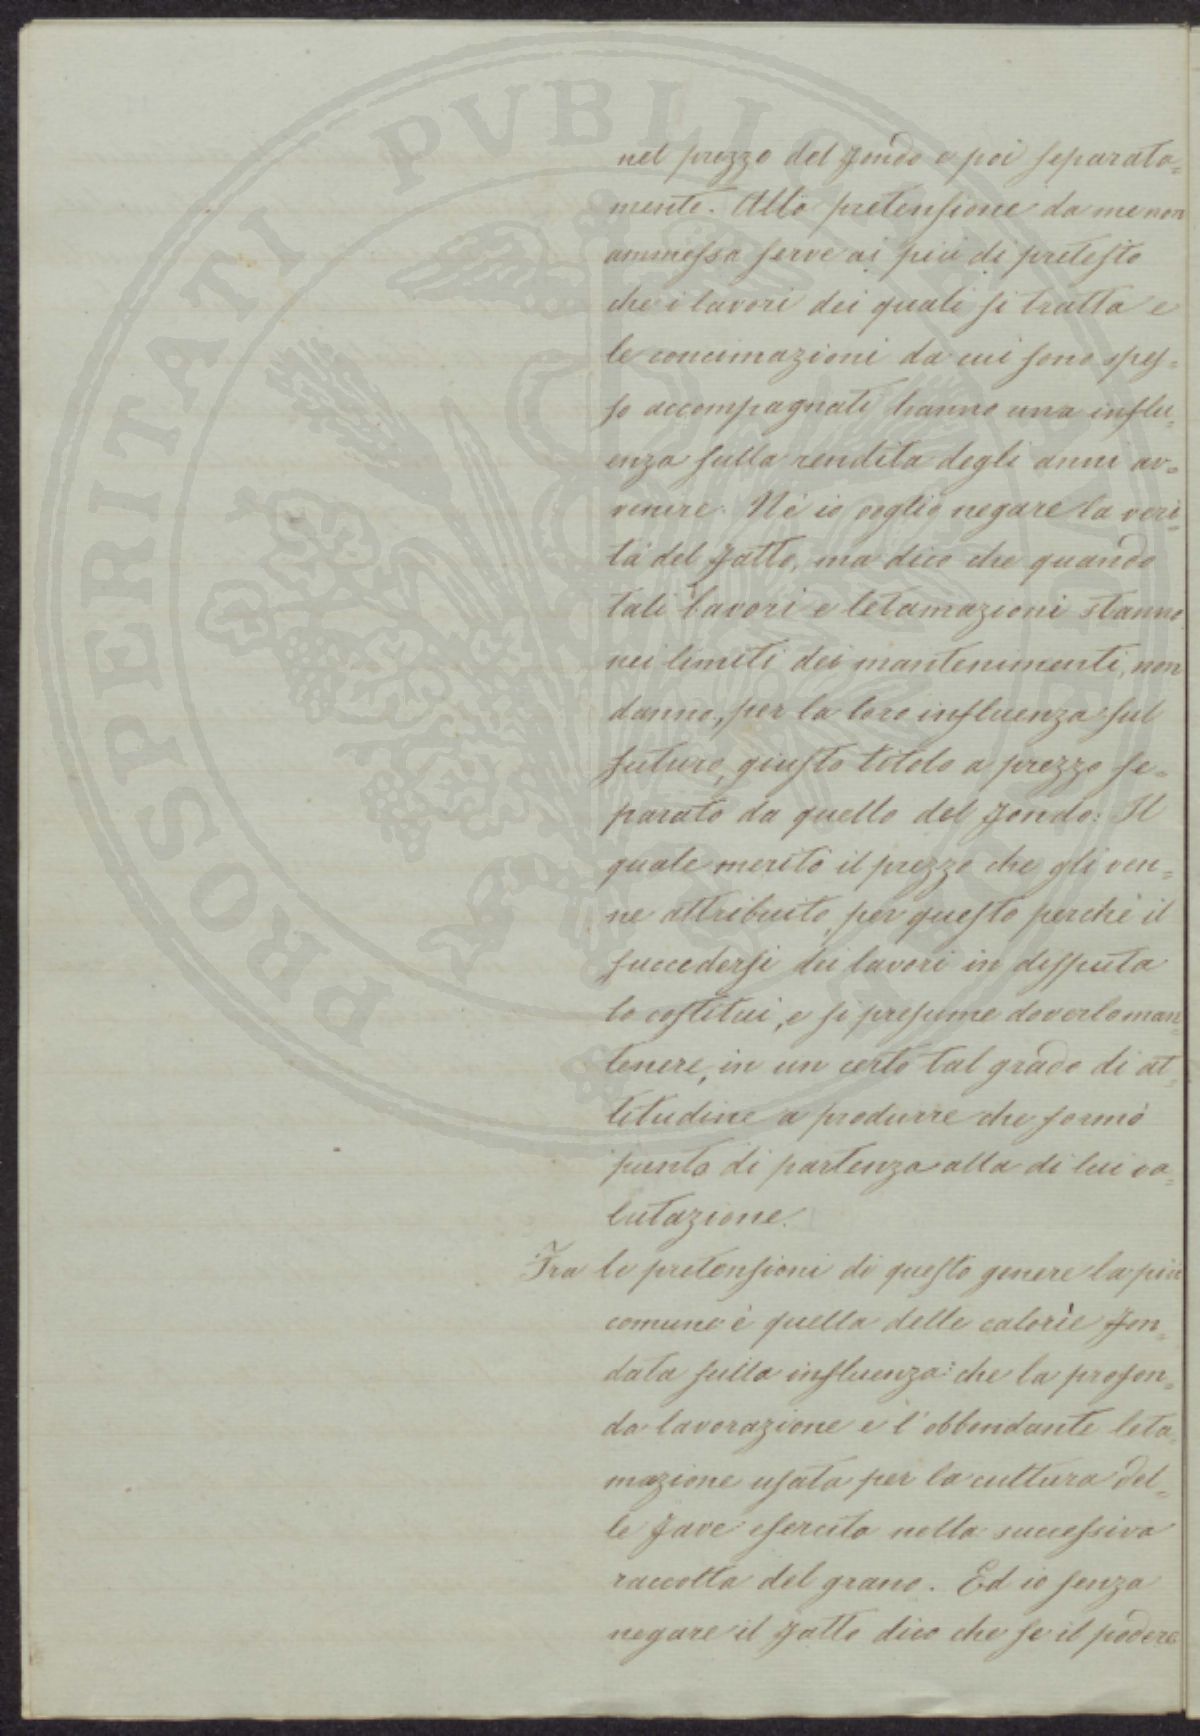 nel prezzo del fondo e poi separata=
mente. Alla pretensione da me non
ammessa serve ai più di pretesto
che i lavori dei quali si tratta e
le concimazioni da cui sono spes=
so accompagnati, hanno una influ=
enza sulla rendita degli anni av=
venire. Nè io voglio negare la veri=
tà del fatto, ma dico che quando
tali lavori e letamazioni stanno
nei limiti dei mantenimenti, non
danno, per la loro influenza sul
futuro, giusto titolo a prezzo se=
parato da quello del fondo: Il
quale meritò il prezzo che gli ven=
ne attribuito, per questo perchè il
succedersi dei lavori in disputa
lo costituì, e si presume doverlo man=
tenere, in un certo tal grado di at=
titudine a produrre che formò
punto di partenza alla di lui va=
lutazione.
Fra le pretensioni di questo genere la più
comune è quella delle calorìe fon=
data sulla influenza: che la profon=
da lavorazione e l'abbondante leta=
mazione usata per la cultura del=
le fave esercita nella successiva
raccolta del grano. Ed io senza
negare il fatto dico che se il podere
PROSPERITATI PUBLICAE